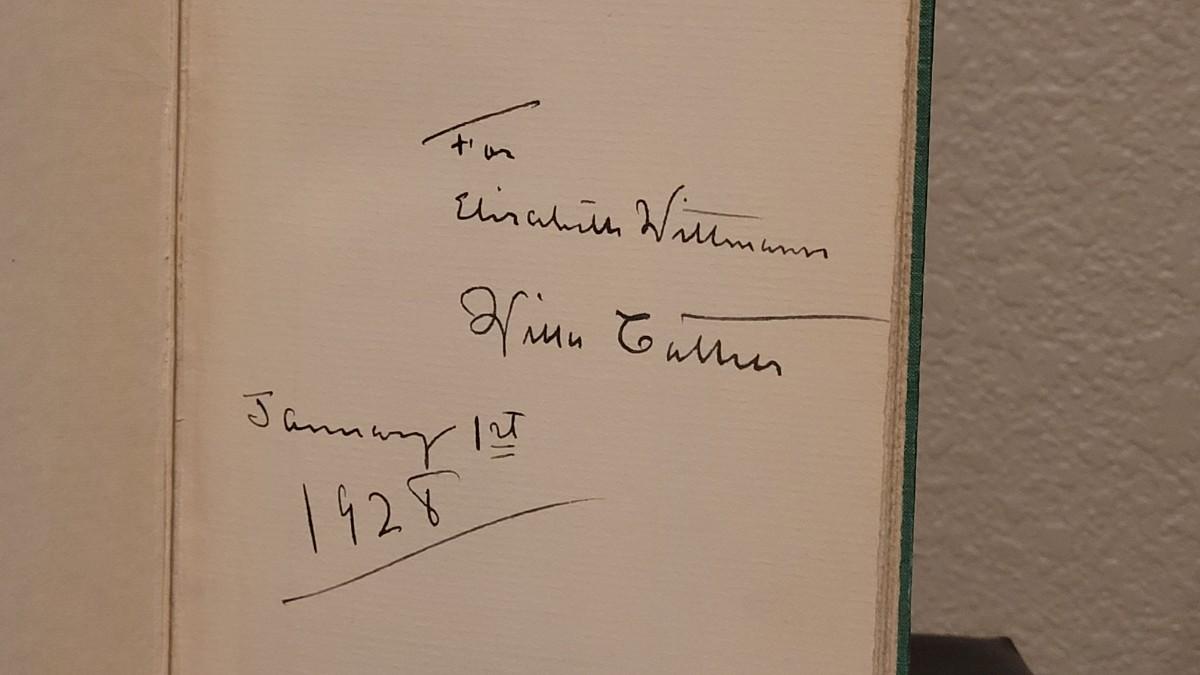 For
Elisabeth Wittmann
Willa Cather
January 1st
1928